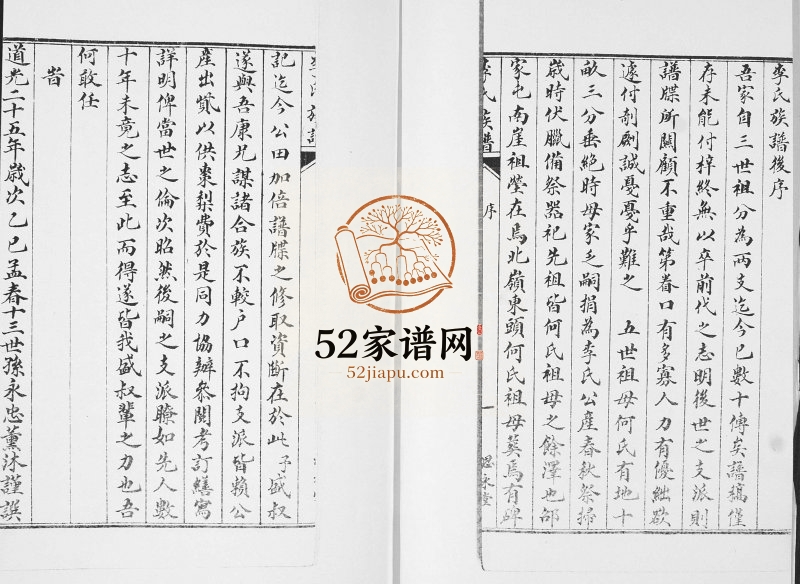 李氏族譜後序
吾家自三世祖分為兩支迄今已數十傳矣譜稿僅
存未能付梓終無以卒前代之志明後世之支派則
譜牒所關顧不重哉第眷口有多寡人力有優絀欲
遽付剞劂誠憂憂乎難之 五世祖母何氏有地十
畝三分垂絕時母家乏嗣捐為李氏公產春秋祭掃
歲時伏臘備祭器祀先祖皆何氏祖母之餘澤也邰
家屯南崖祖塋在焉北嶺東頭何氏祖母葬焉有碑
李氏族譜
序
一
思永堂
記迄今公田加倍譜牒之修取資斷在於此予盛叔
遂與吾康兄謀諸合族不較户口不拘支派皆賴公
產出貲以供棗梨費於是同力協辦參閱考訂繕寫
詳明俾當世之倫次昭然後嗣之支派瞭如先人數
十年未竟之志至此而得遂皆我盛叔輩之力也吾
何敢任
旹
道光二十五年歲次乙巳孟春十三世孫永忠薰沐謹譔
52家谱网
52jiapu.com